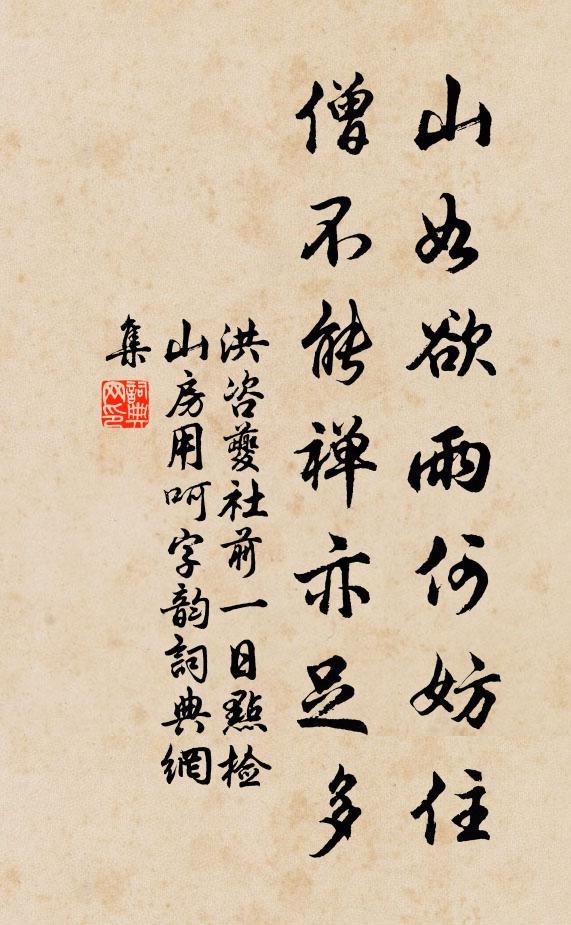 山如欲雨何妨住
僧不能禅亦足多
洪咨夔社前一日點檢
山房用呵字韵詞典網
集
詞典
网印